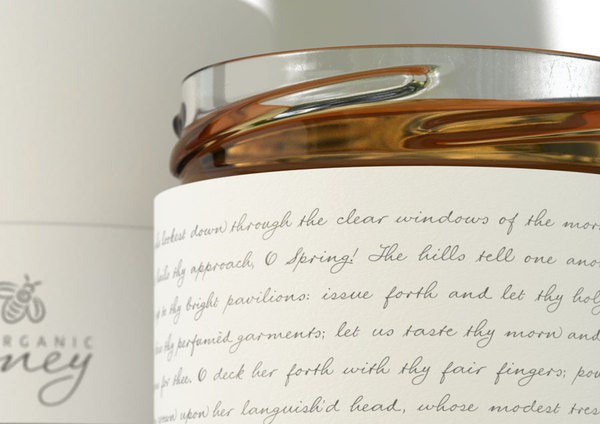 lookest down through the clear windows of the
thy approach, O Spring! The hills tell one
thy bright pavilions: issue forth and let thy
thy perfumèd garments; let us taste thy morn and
for thee. O deck her forth with thy fair fingers;
upon her languish'd head, whose modest
ORGANIC